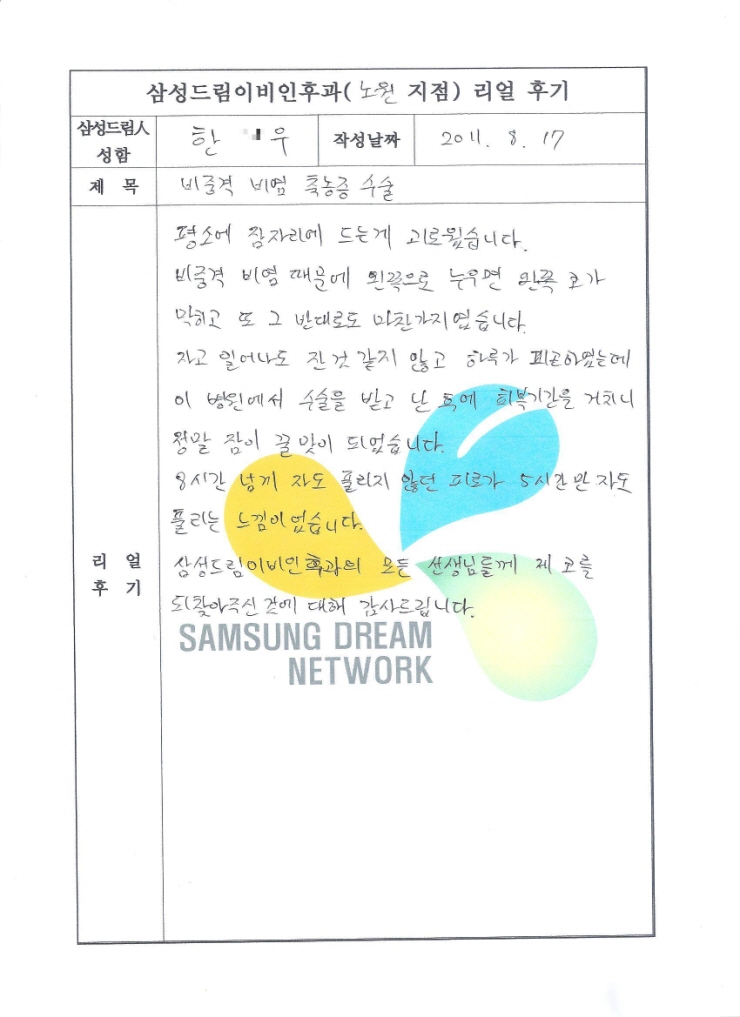 삼성드림이비인후과(노원 지점) 리얼 후기
삼성드림人
성함
한 우
작성날짜
2011. 8. 17
제 목
비중격 비염 축농증 수술
평소에 잠자리에 드는게 괴로웠습니다.
비중격 비염 때문에 왼쪽으로 누우면 왼쪽 코가
막히고 또 그 반대로도 마찬가지였습니다.
자고 일어나도 잔 것 같지 않고 하루가 피곤하였는데
이 병원에서 수술을 받고 난 후에 회복기간을 거치니
정말 잠이 꿀맛이 되었습니다.
8시간 넘게 자도 풀리지 않던 피로가 5시간만 자도
풀리는 느낌이었습니다.
리 얼
후 기
삼성드림이비인후과의 모든 선생님들께 제 코를
되찾아주신 것에 대해 감사드립니다.
SAMSUNG DREAM
NETWORK